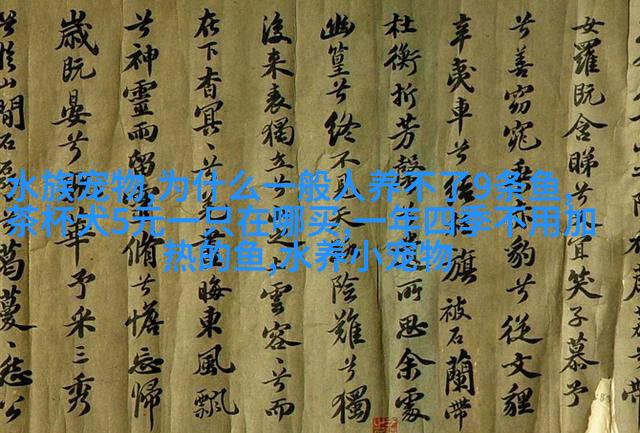 女羅既含睇兮宜笑子慕予
兮善窈窕乘赤豹兮從文貍
辛夷車兮結旗被石蘭帶
杜衡折芳馨所思余處
幽篁兮終不見天陰難兮獨
後來表獨立兮之雲容容兮而
在下杳冥冥兮晦東風飄
兮神靈雨留脩兮憺忘歸
歲既晏兮華予采三秀
兮於山間石葛蔓蔓怨公
水族宠物,为什么一般人养不了9条鱼,
茶杯犬5元一只在哪买,一年四季不用加
热的鱼,水养小宠物